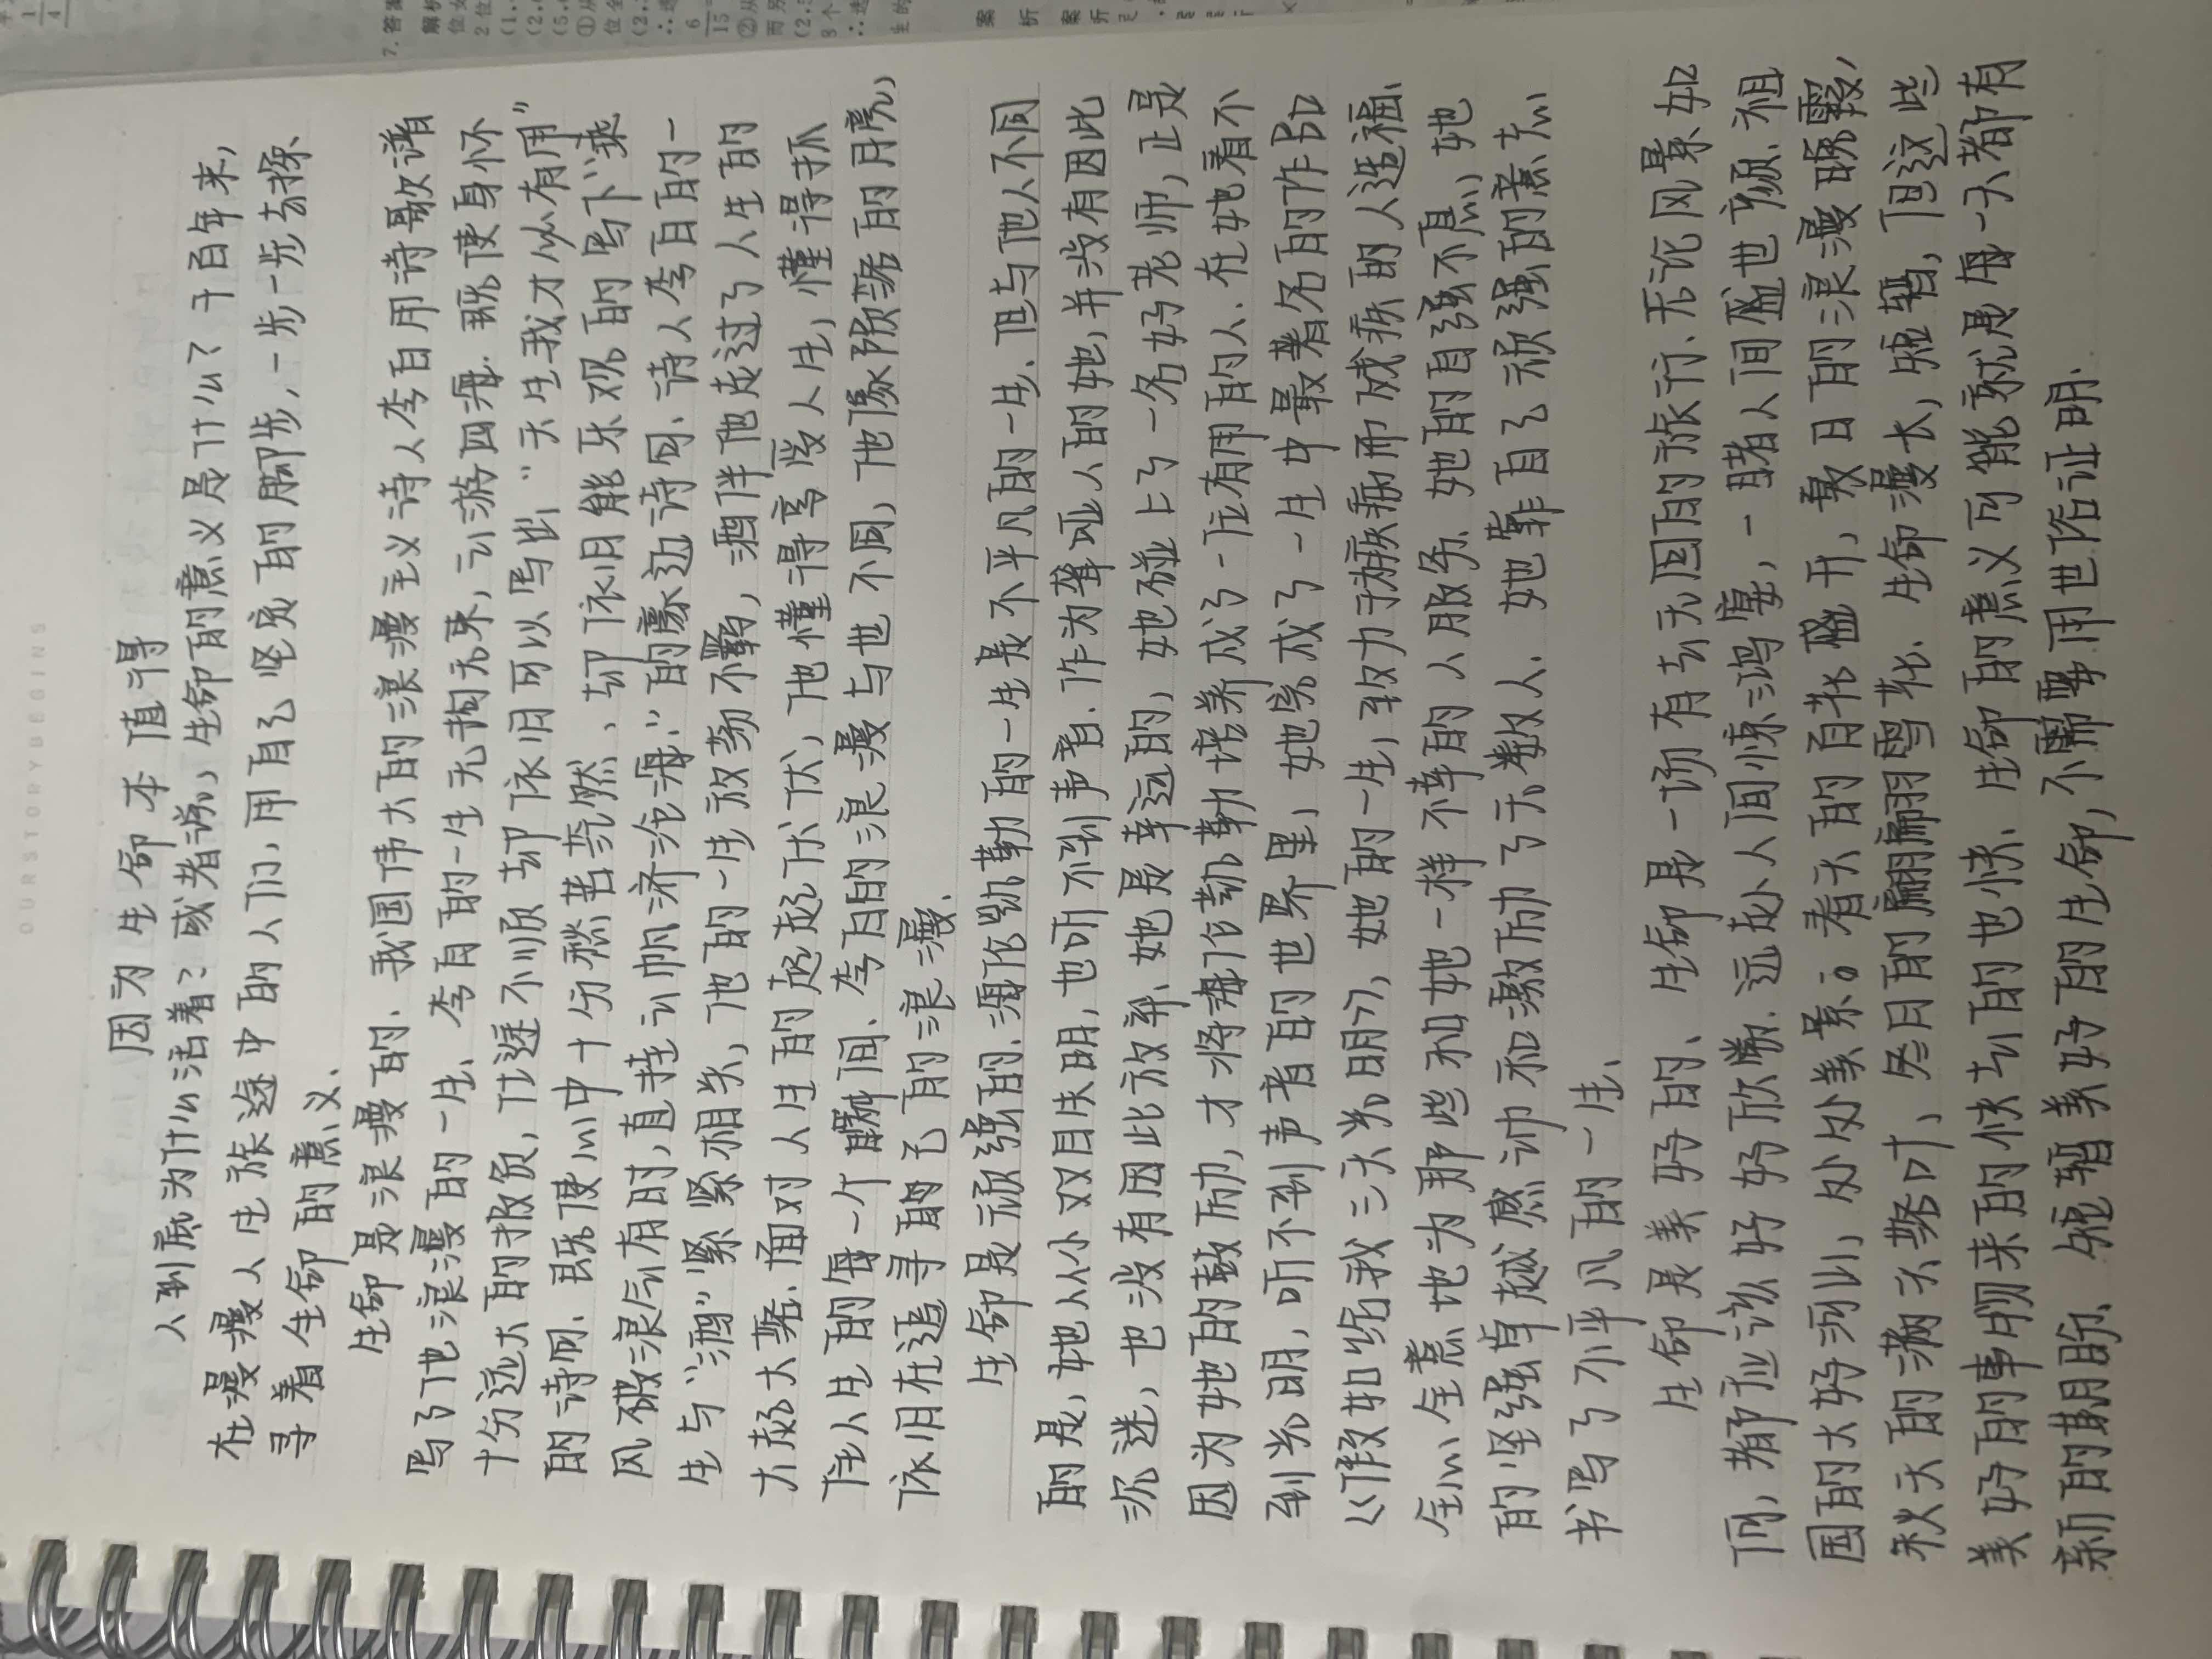 OURSTORYBEGINS
因为生命本值得
人到底为什么活着？或者说，生命的意义是什么？千百年来，
在漫漫人生旅途中的人们，用自己坚实的脚步，一步一步去探
寻着生命的意义.
生命是浪漫的. 我国伟大的浪漫主义诗人李白用诗歌谱
写了他浪漫的一生. 李白的一生无拘无束，云游四海. 既使身怀
十分远大的报负，仕途不顺却依旧可以写出“天生我才必有用”
的诗句. 既使心中十分愁苦茫然，却依旧能乐观的写下“乘
风破浪会有时，直挂云帆济沧海.”的豪迈诗句. 诗人李白的一
生与“酒”紧紧相关，他的一生放荡不羁，酒伴他走过了人生的
大起大落. 面对人生的起起伏伏，他懂得享受人生，懂得抓
住人生的每一个瞬间. 李白的浪漫与世不同，他像陈酿的月亮，
依旧在追寻自己的浪漫.
生命是顽强的. 海伦凯勒的一生是不平凡的一生. 但与他人不同
的是，她从小双目失明，也听不到声音. 作为聋哑人的她，并没有因此
沉迷，也没有因此放弃. 她是幸运的，她碰上了一名好老师，正是
因为她的鼓励，才将海伦凯勒培养成了一位有用的人. 在她看不
到光明，听不到声音的世界里，她完成了一生中最著名的作品
《假如给我三天光明》，她的一生，致力于为残疾的人造福.
全心全意地为那些和她一样不幸的人服务. 她的自强不息，她
的坚强卓越感动和激励了无数人. 她靠自己顽强的意志
书写了不平凡的一生.
生命是美好的. 生命是一场有去无回的旅行. 无论风景如
何，都应该好好欣赏. 远赴人间惊鸿宴，一睹人间盛世颜. 祖
国的大好河山，处处美景。春天的百花盛开，夏日的浪漫晚霞，
秋天的满天落叶，冬日的翩翩雪花. 生命漫长，短暂，但这些
美好的事物来的快去的也快. 生命的意义可能就是每一天都有
新的期盼. 短暂美好的生命，不需要用世俗证明.